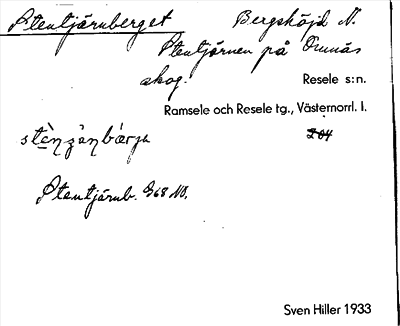 Stentjärnberget
Bergshöjd N.
Stentjärnen på Omnäs
skog.
Resele s:n.
Ramsele och Resele tg., Västernorrl. l.
204
Stentjärnb. G68 NO.
Sven Hiller 1933